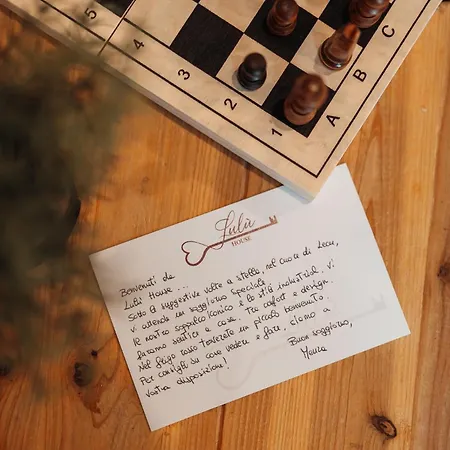 5
4
3
2
1
A
B
C
Lulù
HOUSE
Benvenuti da
Lulù House ...
Sotto 8 suggestive volte a stella, nel cuore di Lecce,
vi attende un soggiorno speciale.
Il nostro soppalco iconico e lo stile industrial, vi
faranno sentire a casa. Tra comfort e design.
Nel frigo rosso troverete un piccolo benvenuto.
Per consigli su cosa vedere e fare, siamo a
vostra disposizione!
Buon soggiorno,